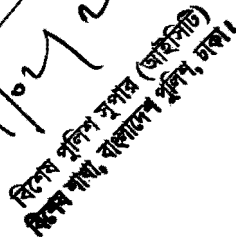 বিশেষ পুলিশ সুপার (আইসিটি)
বিশেষ শাখা, বাংলাদেশ পুলিশ, ঢাকা।